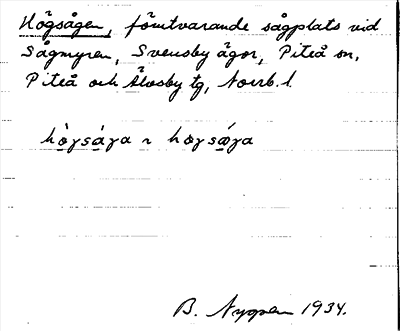 Högsågen, förutvarande sågplats vid
Sågmyren, Svensby ägor, Piteå sn,
Piteå och Älvsby tg, Norrb. l.
B. Nygren 1934.